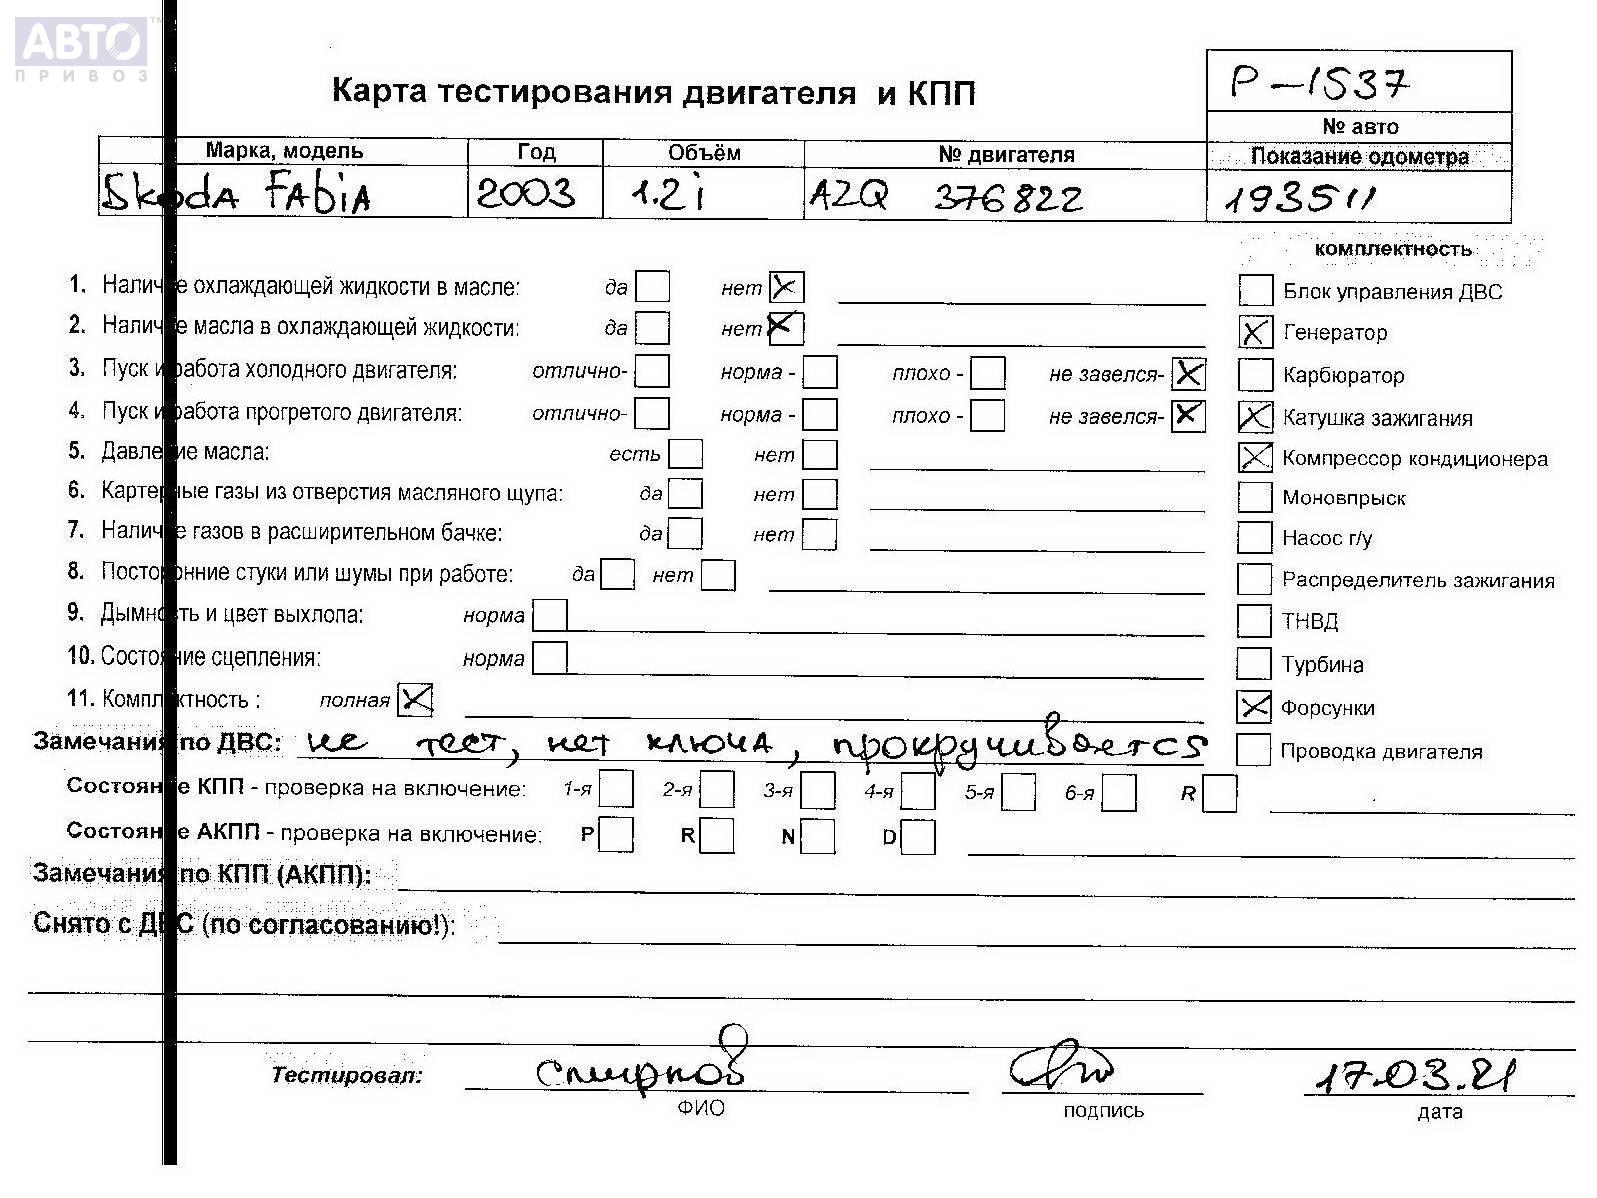 АВТО™
ПРИВОЗ
Карта тестирования двигателя и КПП
P-1537
№ авто
Марка, модель Год Объём № двигателя Показание одометра
Skoda FAbiA 2003 1.2i AZQ 376822 193511
комплектность
1. Наличие охлаждающей жидкости в масле: да нет X
Блок управления ДВС
2. Наличие масла в охлаждающей жидкости: да нет X
X Генератор
3. Пуск и работа холодного двигателя: отлично- норма - плохо - не завелся- X
Карбюратор
4. Пуск и работа прогретого двигателя: отлично- норма - плохо - не завелся- X
X Катушка зажигания
5. Давление масла: есть нет
X Компрессор кондиционера
6. Картерные газы из отверстия масляного щупа: да нет
Моновпрыск
7. Наличие газов в расширительном бачке: да нет
Насос г/у
8. Посторонние стуки или шумы при работе: да нет
Распределитель зажигания
9. Дымность и цвет выхлопа: норма
ТНВД
10. Состояние сцепления: норма
Турбина
11. Комплектность : полная X
X Форсунки
Замечания по ДВС: не тест, нет ключа, прокручивается
Проводка двигателя
Состояние КПП - проверка на включение: 1-я 2-я 3-я 4-я 5-я 6-я R
Состояние АКПП - проверка на включение: P R N D
Замечания по КПП (АКПП):
Снято с ДВС (по согласованию!):
Тестировал: Смирнов 17.03.21
ФИО подпись дата